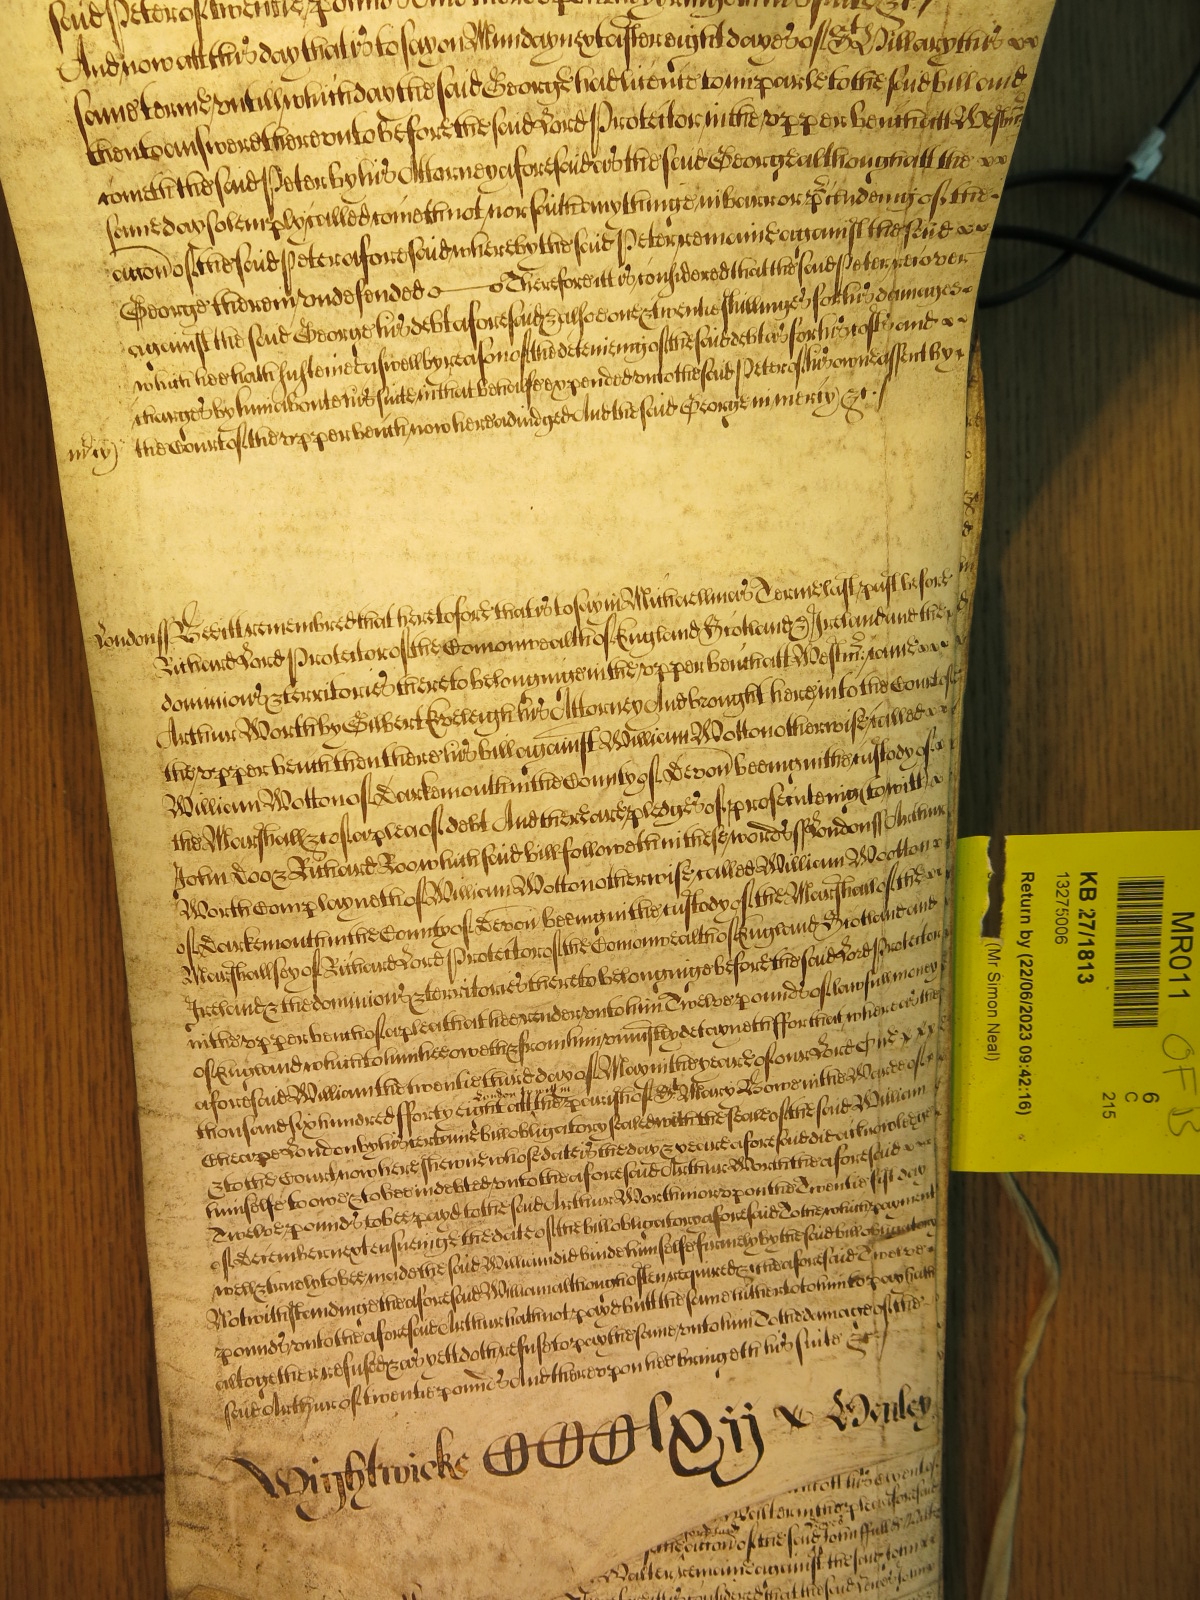 said Peter of twentie pounds And thereupon hee bringeth his suite &c /
And now att this day that is to say on Munday next after eight dayes of St Hillary this
same terme untill which day the said George had licence to imparle to the said bill and
then to answere thereunto before the said Lord Protector in the upper bench att Westmr
cometh the said Peter by his Attorney aforesaid as the said George although att the
same day solemply called cometh not nor saith any thinge in barr or preludeing of the
accon of the said Peter aforesaid whereby the said Peter remaine against the said
George therein undefended Therefore itt is considered that the said Peter recover
against the said George his debt aforesaid & alsoe one & twentie shillinges for his damages
which hee hath susteined aswell by reason of the deteineing of the said debt as for his costs and
charges by him about his suite in that behalfe expended unto the said Peter of his owne assent by
mrcy the Court of the upper bench now here adiudged And the said George in mercy &c /
London ss Bee itt remembred that heretofore that is to say in Michaellmas Terme last past before
Richard Lord Protector of the Comonwealth of England Scotland & Ireland and the
dominions & territories thereto belonginge in the upper bench att Westmr came
Arthur Worth by Gilbert Eveleigh his Attorney And brought here into the Court of
the upper bench then there his bill against William Wotton otherwise called
William Wotton of Darkemouth in the County of Devon beeing in the custody of
the Marshall &c of a plea of debt And there are pledges of prosecuteing to witt
John Doo & Richard Roo which said bill followeth in these words ss London ss Arthur
Worth Complayneth of William Wotton otherwise called William Wootton
of Darkemouth in the County of Devon beeing in the custody of the Marshall of the
Marshallsey of Richard Lord Protector of the Comonwealth of England Scotland and
Ireland & the dominions & territories thereto belonginge before the said Lord Protector
in the upper bench of a plea that hee render unto him Twelve pounds of lawfull money
of England which to him hee oweth & from him uniustly detayneth ffor that whereas the
aforesaid William the twentie third day of May in the yeare of our Lord One
thousand six hundred fforty eight att London in the parish of St Mary Bowe in the Warde of
Cheape London by his certaine bill obligatory sealed with the seale of the said William
& to the Court now here shewne whose date is the day & yeare aforesaid did acknowledge
himselfe to owe & to bee indebted unto the aforesaid Arthur Worth the aforesaid
Twelve pounds to bee payd to the said Arthur Worth in or upon the Twentie first day
of December next ensueinge the date of the bill obligatory aforesaid To the which payment
well & truely to bee made the said William did binde himselfe firmely by the said bill obligatory
Notwithstandinge the aforesaid William although often required & the aforesaid Twelve
pounds unto the aforesaid Arthur hath not payd butt the same hitherto to him to pay hath
altogether refused & as yett doth refuse to pay the same unto him To the damage of the
said Arthur of twentie pounds And thereupon hee bringeth his suite &c
Wightwicke CCClxij x Henley
accon of the said John ffull
Walter remaine against the said John
Therefore itt is considered that the said
MR011
6
C
215
KB 27/1813
13275006
Return by (22/06/2023 09:42:16)
(Mr Simon Neal)